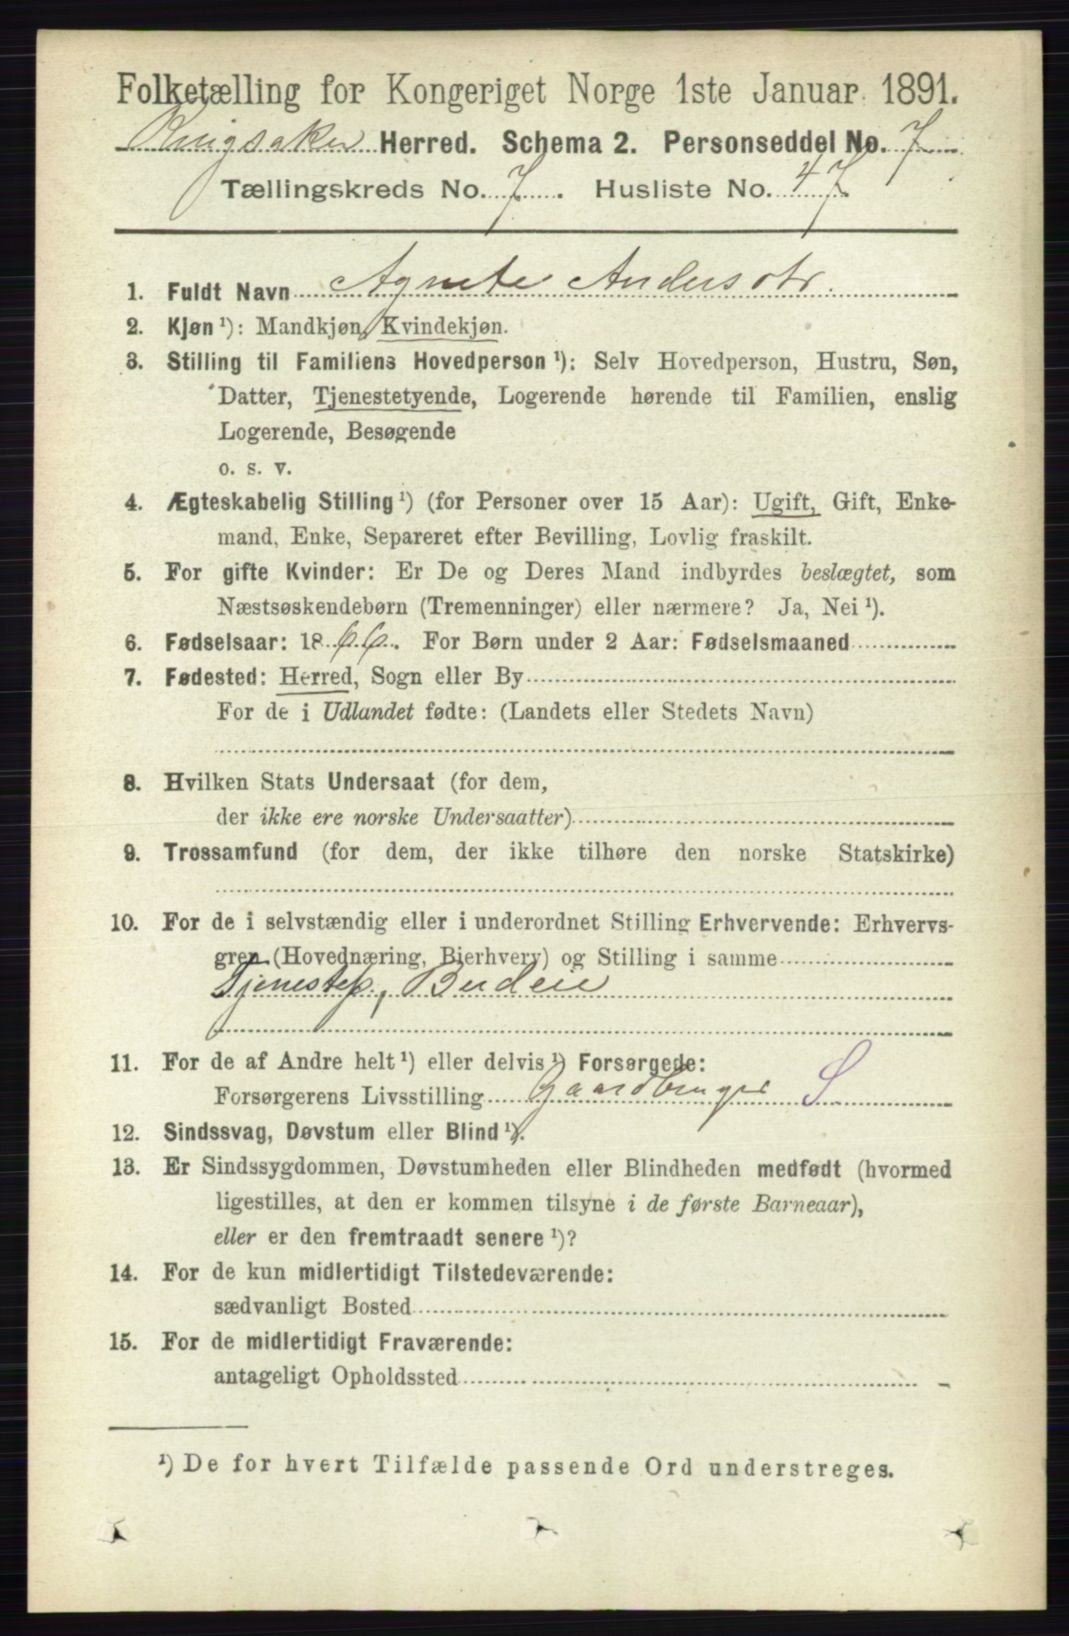 Folketælling for Kongeriget Norge 1ste Januar 1891.
Ringsaker Herred. Schema 2. Personseddel No. 7
Tællingskreds No. 7. Husliste No. 47
1. Fuldt Navn Agnete Andersdtr.
2. Kjøn ¹): Mandkjøn, Kvindekjøn.
3. Stilling til Familiens Hovedperson ¹): Selv Hovedperson, Hustru, Søn,
Datter, Tjenestetyende, Logerende hørende til Familien, enslig
Logerende, Besøgende
o. s. v.
4. Ægteskabelig Stilling ¹) (for Personer over 15 Aar): Ugift, Gift, Enke-
mand, Enke, Separeret efter Bevilling, Lovlig fraskilt.
5. For gifte Kvinder: Er De og Deres Mand indbyrdes beslægtet, som
Næstsøskendebørn (Tremenninger) eller nærmere? Ja, Nei ¹).
6. Fødselsaar: 1866. For Børn under 2 Aar: Fødselsmaaned
7. Fødested: Herred, Sogn eller By
For de i Udlandet fødte: (Landets eller Stedets Navn)
8. Hvilken Stats Undersaat (for dem,
der ikke ere norske Undersaatter)
9. Trossamfund (for dem, der ikke tilhøre den norske Statskirke)
10. For de i selvstændig eller i underordnet Stilling Erhvervende: Erhvervs-
gren (Hovednæring, Bierhverv) og Stilling i samme
Tjenestep, Budeie
11. For de af Andre helt ¹) eller delvis ¹) Forsørgede:
Forsørgerens Livsstilling Gaardbruger S
12. Sindssvag, Døvstum eller Blind ¹).
13. Er Sindssygdommen, Døvstumheden eller Blindheden medfødt (hvormed
ligestilles, at den er kommen tilsyne i de første Barneaar),
eller er den fremtraadt senere ¹)?
14. For de kun midlertidigt Tilstedeværende:
sædvanligt Bosted
15. For de midlertidigt Fraværende:
antageligt Opholdssted
¹) De for hvert Tilfælde passende Ord understreges.